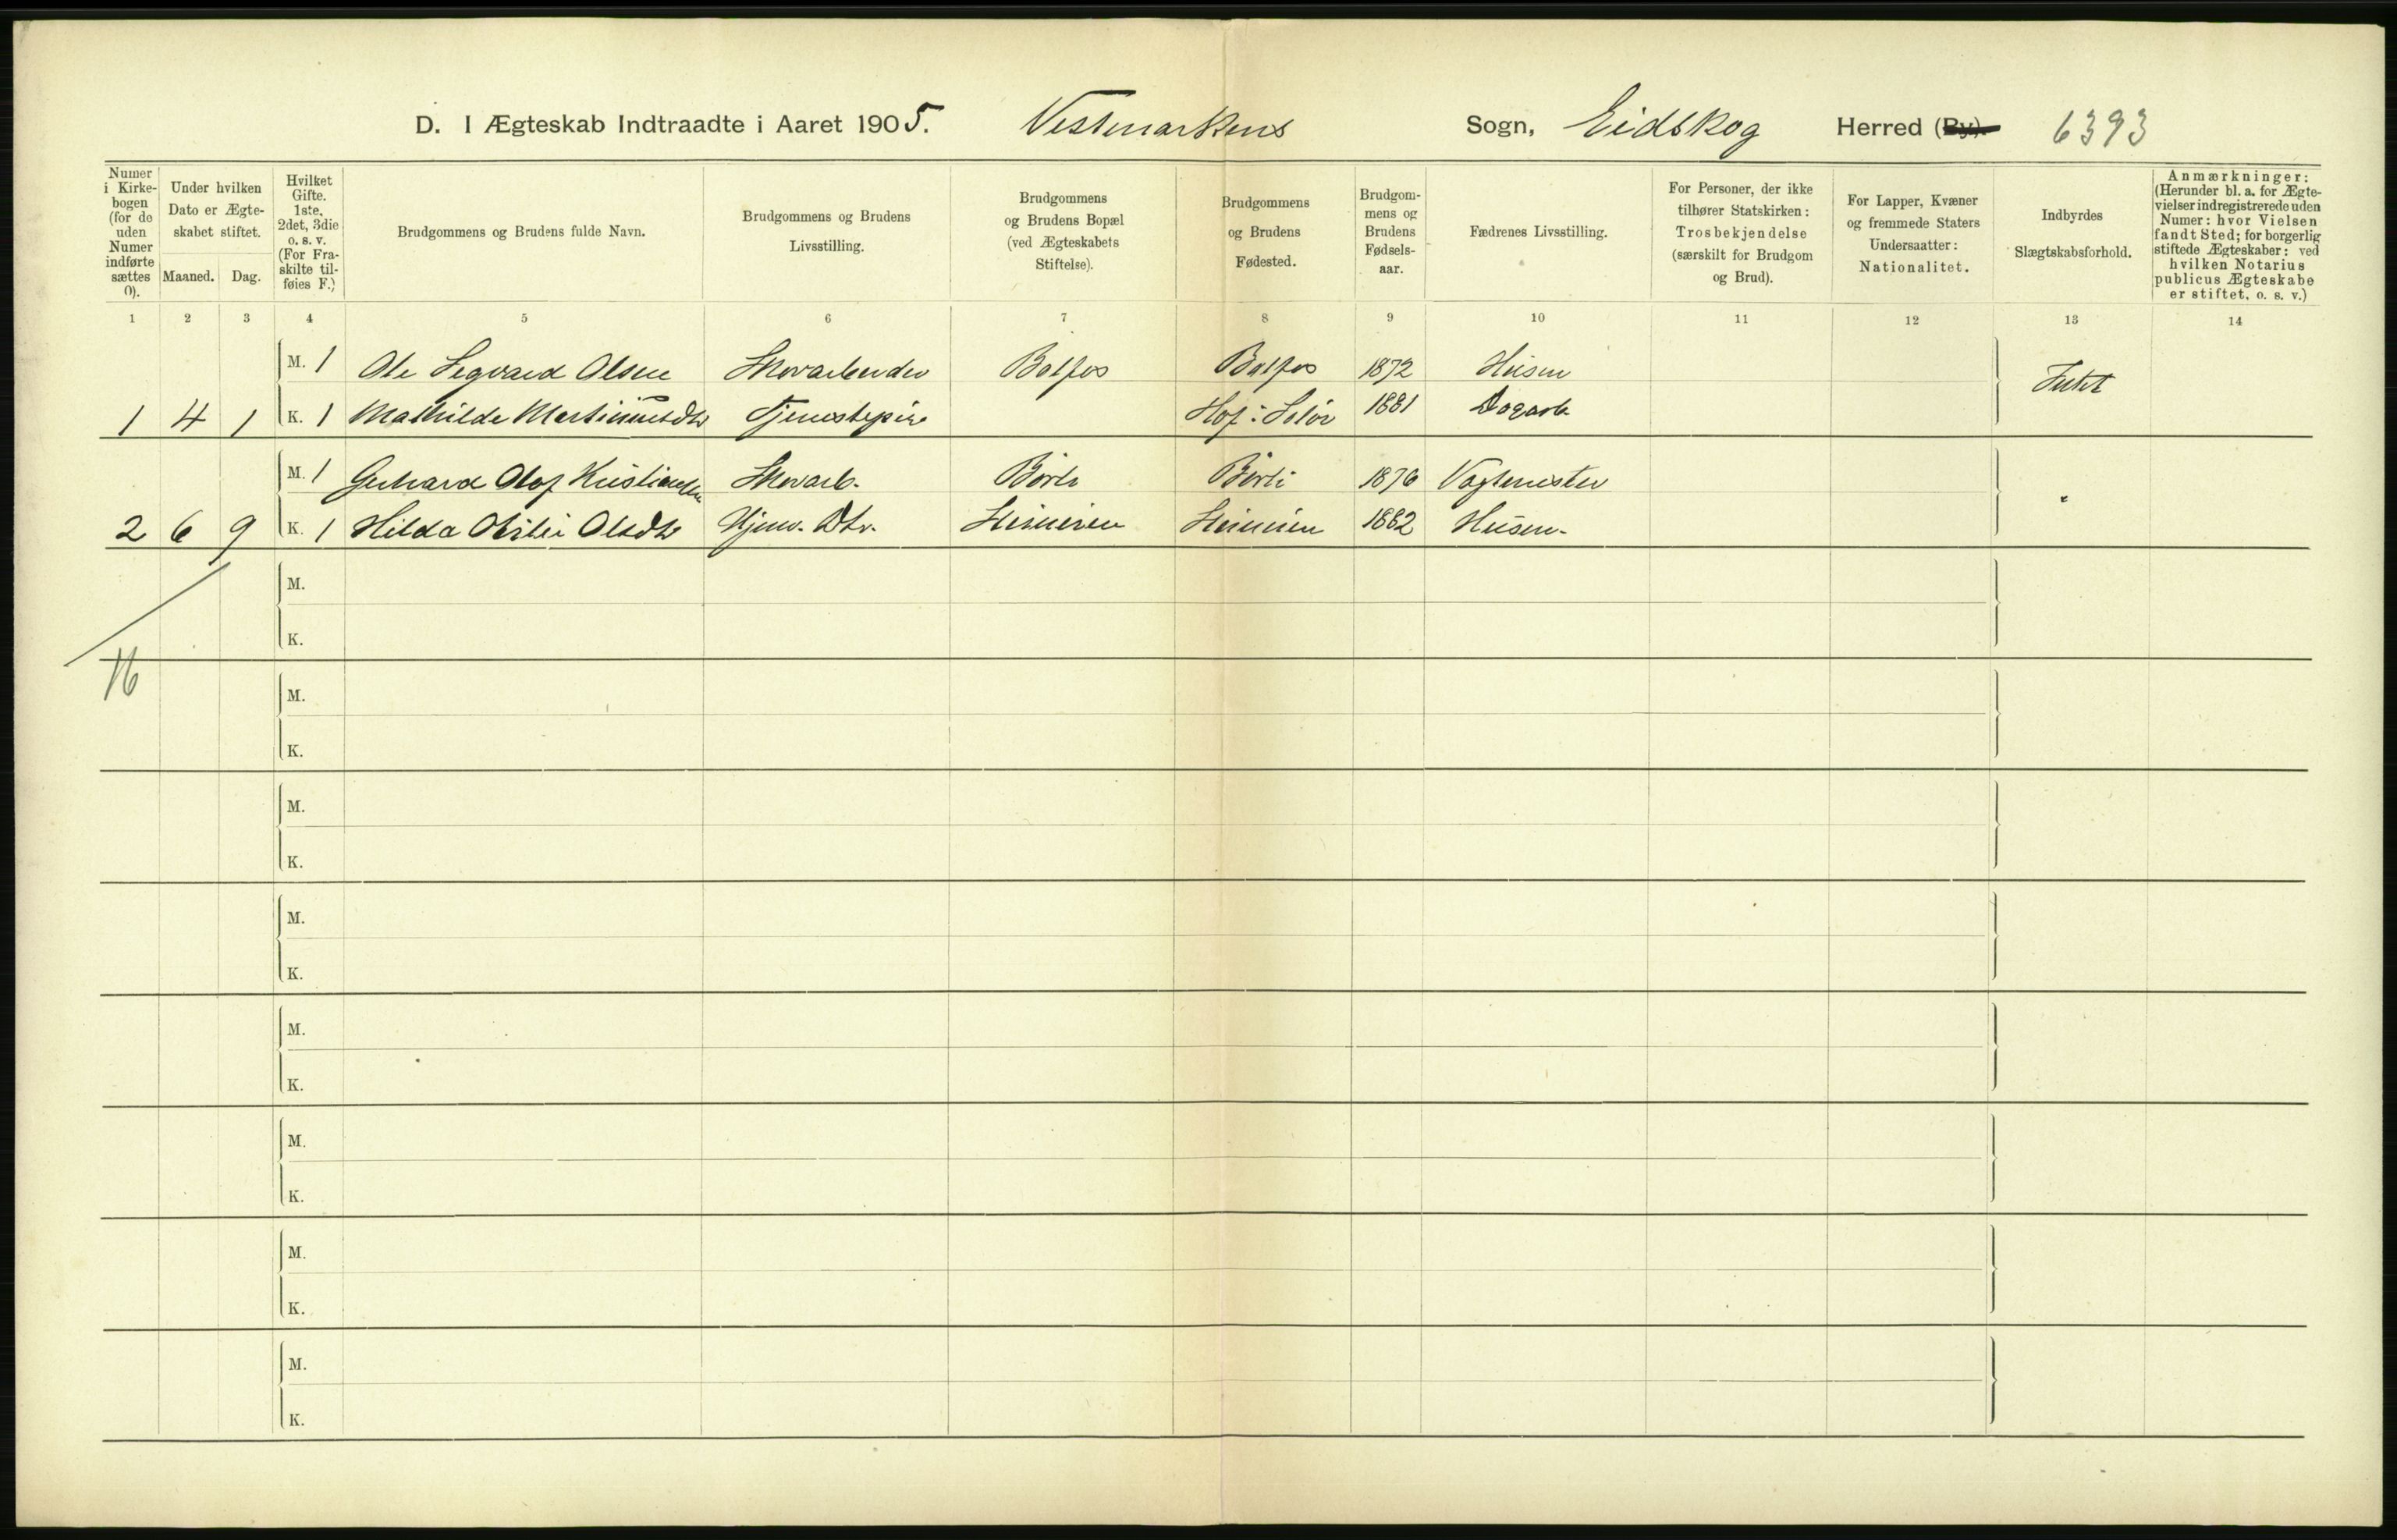 D. I Ægteskab Indtraadte i Aaret 1905. Vestmarkens Sogn, Eidskog Herred (By). 6393
Numer i Kirkebogen (for de uden Numer indførte sættes 0).
Under hvilken Dato er Ægteskabet stiftet.
Maaned. Dag.
Hvilket Gifte. 1ste, 2det, 3die o. s. v. (For Fraskilte tilføies F.)
Brudgommens og Brudens fulde Navn.
Brudgommens og Brudens Livsstilling.
Brudgommens og Brudens Bopæl (ved Ægteskabets Stiftelse).
Brudgommens og Brudens Fødested.
Brudgommens og Brudens Fødselsaar.
Fædrenes Livsstilling.
For Personer, der ikke tilhører Statskirken: Trosbekjendelse (særskilt for Brudgom og Brud).
For Lapper, Kvæner og fremmede Staters Undersaatter: Nationalitet.
Indbyrdes Slægtskabsforhold.
Anmærkninger: (Herunder bl. a. for Ægtevielser indregistrerede uden Numer: hvor Vielsen fandt Sted; for borgerlig stiftede Ægteskaber: ved hvilken Notarius publicus Ægteskabe er stiftet, o. s. v.)
1 2 3 4 5 6 7 8 9 10 11 12 13 14
M. 1 Ole Segvard Olsen Skovarbeider Balfos Balfos 1872 Husm Intet
1 4 1 K. 1 Mathilde Martinusdtr Tjenestepige Hof i Solør 1881 Dagarb.
M. 1 Gerhard Olaf Kristiansen Skovarb. Børli Børli 1876 Vagtmester "
2 6 9 K. 1 Hilda Olsdtr Hjemv. Dtr. 1882 Husm.
M.
K.
16
M.
K.
M.
K.
M.
K.
M.
K.
M.
K.
M.
K.
M.
K.